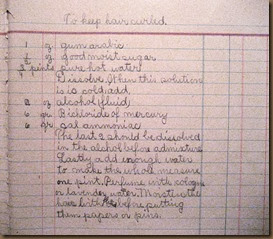 To keep hair curled
1 oz gum arabic
½ oz of good moist sugar
¾ pints pure hot water
Dissolve. When this solution
is is cold, add,
2 oz of alcohol fluid
6 gr Bichloride of mercury
6 gr sal ammoniac
The last 2 should be dissolved
in the alcohol before admixture
Lastly add enough water
to make the whole measure
one pint. Perfume with cologne
or lavender water. Moisten the
hair with before putting
them papers or pins.